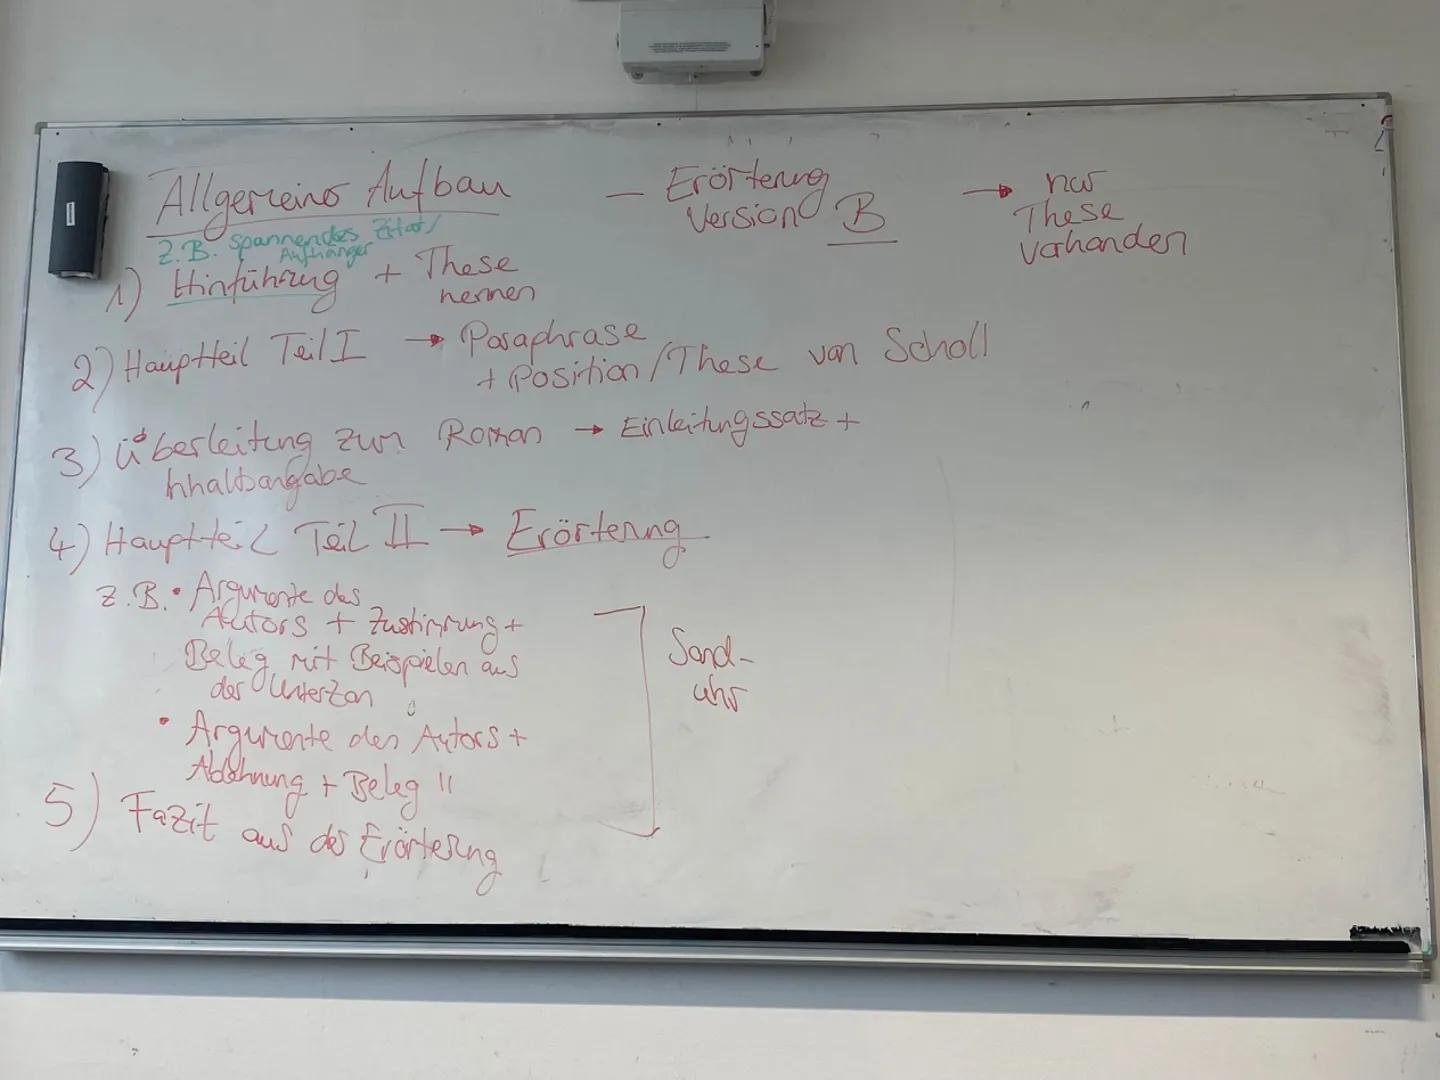 Allgemeiner Aufbau – Erörterung Version B → nur These vorhanden
z.B. spannendes Zitat/
Aufhänger
1) Hinführung + These
nennen
2) Hauptteil Teil I → Paraphrase
+ Position/These von Scholl
3) Überleitung zum Roman → Einleitungssatz +
Inhaltsangabe
4) Hauptteil Teil II → Erörterung
z.B. • Argumente des
Autors + Zustimmung +
Beleg mit Beispielen aus
der
• Argumente des Autors +
Ablehnung + Beleg "
Sand-
uhr
5) Fazit aus der Erörterung